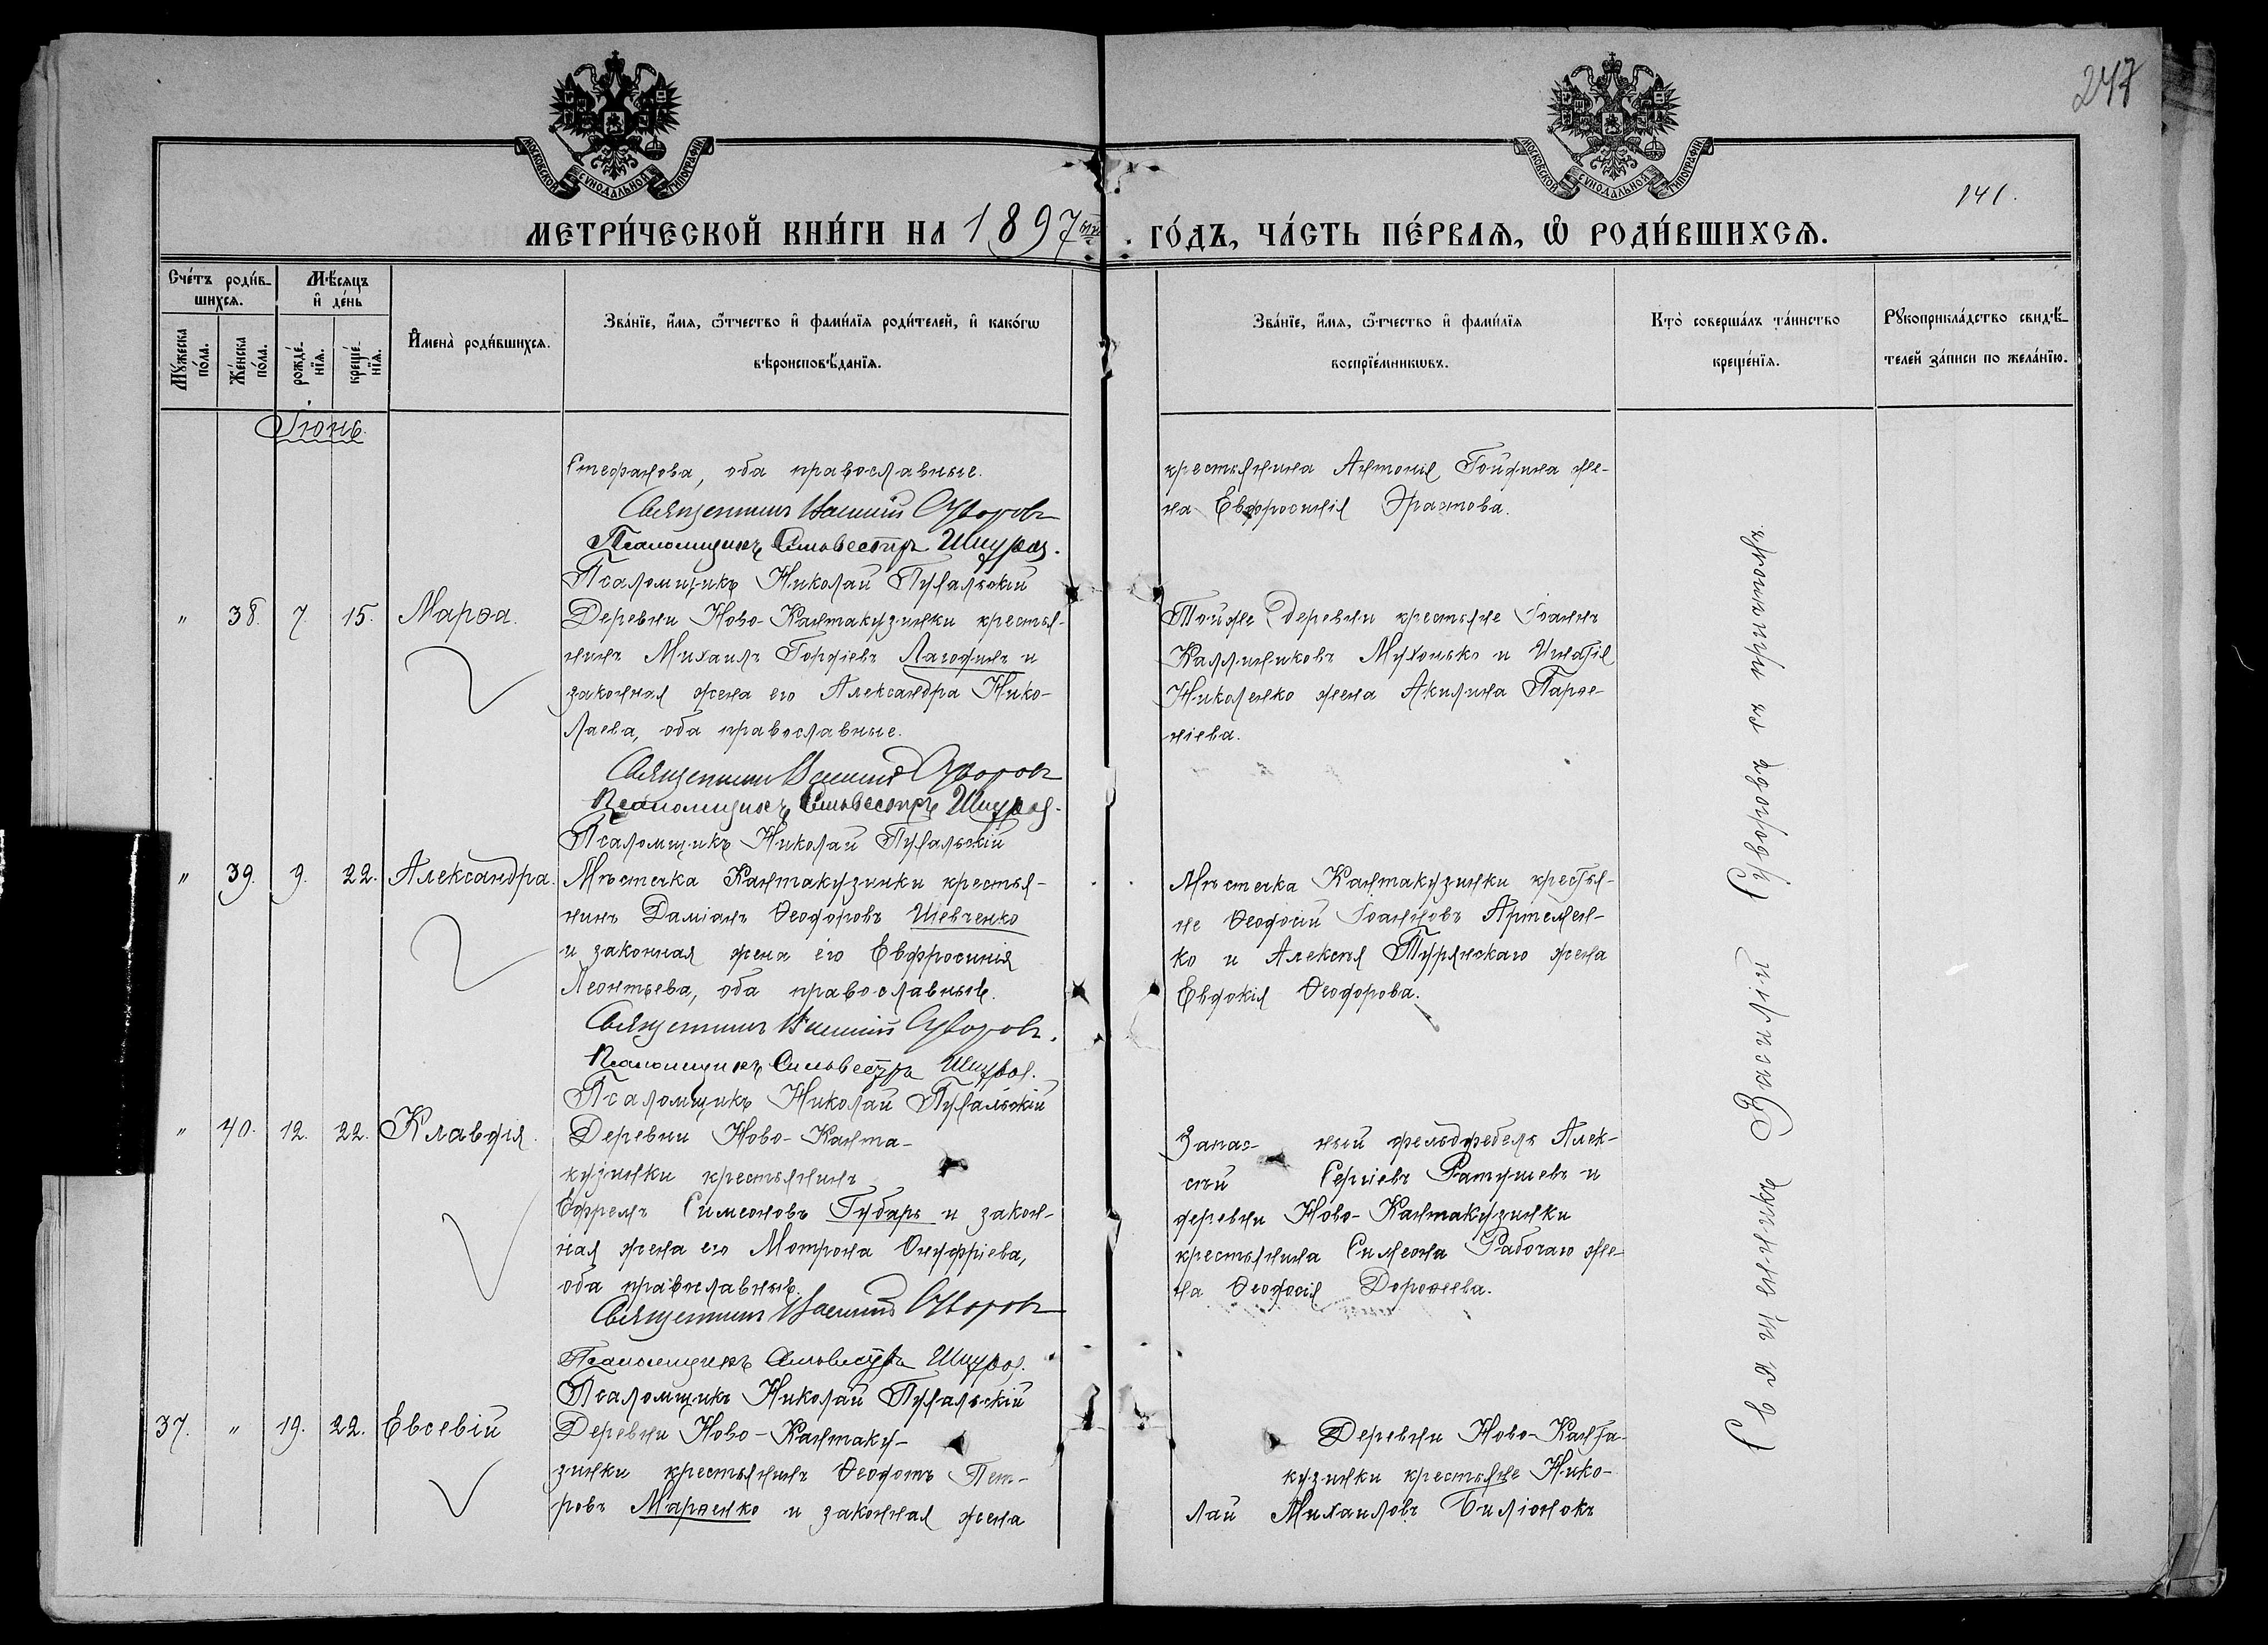 247
141.
МОСКОВСКОЙ СѴНОДАЛЬНОЙ ТИПОГРАФІИ
МОСКОВСКОЙ СѴНОДАЛЬНОЙ ТИПОГРАФІИ
МЕТРИ́ЧЕСКОЙ КНИ́ГИ НА 1897ый ГО́ДЪ, ЧА́СТЬ ПЕ́РВАѦ, Ѽ РОДИ́ВШИХСѦ.
Сче́тъ роди́в-
шихсѧ.
Мѣ́сѧцъ
и҆ де́нь
Мꙋ́жеска
по́ла.
Же́нска
по́ла.
рожде́-
нїѧ.
креще́-
нїѧ.
И҆мена̀ роди́вшихсѧ.
Зва́нїе, и҆́мѧ, ѻ҆́тчество и҆ фами́лїѧ роди́телей, и҆ како́гѡ
вѣроисповѣ́данїѧ.
Зва́нїе, и҆́мѧ, ѻ҆́тчество и҆ фами́лїѧ
воспрїе́мникѡвъ.
Кто̀ соверша́лъ та́инство
креще́нїѧ.
Рꙋкоприкла́дство свидѣ́-
телей за́писи по жела́нїю.
Іюнь.
Стефанова, оба православные.
Священникъ Василій Суворовъ
Псаломщикъ Сильвестръ
Псаломщикъ Николай
крестьянина Антонія Гойдина же-
на Евфросинія Эрастова.
" 38. 7. 15. Марѳа.
Деревни Ново-Кантакузинки крестья-
нинъ Михаилъ Гордіевъ Лагодинъ и
законная жена его Александра Нико-
лаева, оба православные.
Священникъ Василій Суворовъ
Псаломщикъ Сильвестръ
Псаломщикъ Николай
Тойже деревни крестьяне Іоаннъ
Каллиниковъ Мухонько и Игнатія
Николенко жена Акилина Парѳе-
ніева.
" 39. 9. 22. Александра.
Мѣстечка Кантакузинки крестья-
нинъ Даміанъ Ѳеодоровъ Шевченко
и законная жена его Евфросинія
Леонтьева, оба православные.
Священникъ Василій Суворовъ.
Псаломщикъ Сильвестръ
Псаломщикъ Николай
Мѣстечка Кантакузинки крестья-
не Ѳеодосій Іоанновъ Артемен-
ко и Алексѣя Турянскаго жена
Евдокія Ѳеодорова.
" 40. 12. 22. Клавдія.
Деревни Ново-Канта-
кузинки крестьянинъ
Ефремъ Симеоновъ Губарь и закон-
ная жена его Мотрона Онуфріева,
оба православные.
Священникъ Василій Суворовъ
Псаломщикъ Сильвестръ
Псаломщикъ Николай
Запас- ный фельдфебель Алек-
сѣй Сергіевъ Ратушевъ и
деревни Ново-Кантакузинки
крестьянина Симеона Рабочаго же-
на Ѳеодосія Дороѳеева.
37. " 19. 22. Евсевій
Деревни Ново-Кантаку-
зинки крестьянинъ Ѳеодотъ Пет-
ровъ Марченко и законная жена
Деревни Ново-Канта-
кузинки крестьяне Нико-
лай Михаиловъ Билюнокъ
Священникъ Василій Суворовъ съ причтомъ